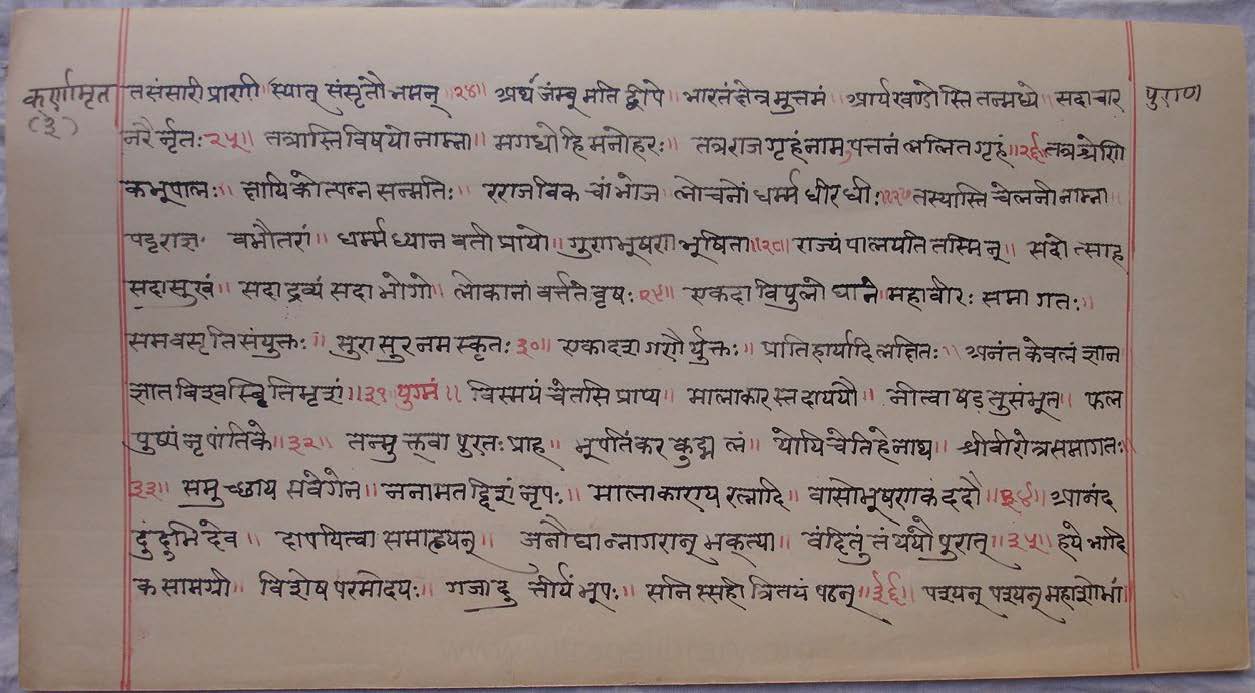 कर्णामृत तसंसारी प्राणी स्यात् संसृतौ भमन् २४॥ अर्थ जंम्बूमति द्वीपे॥ भारतं क्षेत्रमुत्तमं॥ आर्यखण्डोस्ति तन्मध्ये॥ सदाचार पुराण
(३) नरैर्नृतः २५॥ तत्रास्ति विषयो नाम्ना॥ मगधो हि मनोहरः॥ तत्र राजगृहं नाम पत्तनं ललितगृहं॥२६॥ तत्र श्रेणि
कभूपालः॥ ज्ञायिकोत्पन्न सन्मतिः॥ रराज विकचांभोज लोचनो धर्म्मधीरधीः॥२७ तस्यास्ति चेलनी नाम्ना॥
पट्टराज्ञ॰ वभौतरां॥ धर्म्मध्यानवती प्रायो॥ गुणभूषणभूषिता॥२८॥ राज्यं पालयति तस्मिन्॥ सदोत्साह
सदासुखं॥ सदा द्रव्यं सदा भोगो॥ लोकानां वर्त्तते वृषः २९॥ एकदा विपुलोद्याने॥ महावीरः समागतः॥
समवसृतिसंयुक्तः॥ सुरासुरनमस्कृतः ३०॥ एकादश गणैर्युक्तः॥ प्रातिहार्यादि लक्षितः॥ अनंत केवलं ज्ञान
ज्ञातविश्वस्थितिभृशं॥३१ युग्मं॥ विस्मयं चेतसि प्राप्य॥ मालाकारस्तदाययौ॥ नीत्वा षडतुसंभूत॥ फल
पुष्पं नृपांतिके॥३२॥ तन्मुक्तवा पुरतः प्राह॥ भूपतिं कर कुद्मलं॥ योयिचेति हे नाथ॥ श्रीवीरोत्र समागतः॥
३३॥ समुच्छाय सवेगेन॥ ननाम तद्दिशं नृपः॥ मालाकाराय रत्नादि॥ वासोभूषणकं ददौ॥३४॥ आनंद
दुंदुभि देव॥ दापयित्वा समाह्वयन्॥ जनौघान्नागरान् भक्त्या॥ वंदितुं तं ययौ पुरात्॥३५॥ हये भादि
क सामग्री॥ विशेष परमोदयः॥ गजादुत्तीर्य भूपः॥ सनिस्सही त्रितयं पठन्॥३६॥ पश्यन् पश्यन् महाशोभां॥